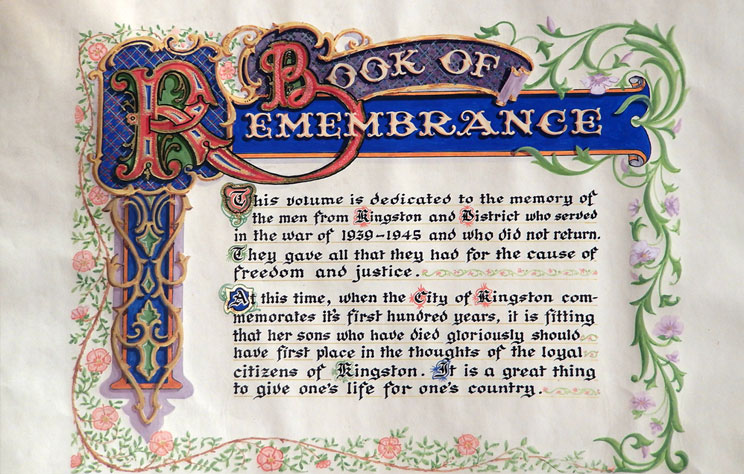 BOOK OF
REMEMBRANCE
This volume is dedicated to the memory of
the men from Kingston and District who served
in the war of 1939-1945 and who did not return.
They gave all that they had for the cause of
freedom and justice.
At this time, when the City of Kingston com-
memorates it's first hundred years, it is fitting
that her sons who have died gloriously should
have first place in the thoughts of the loyal
citizens of Kingston. It is a great thing
to give one's life for one's country.